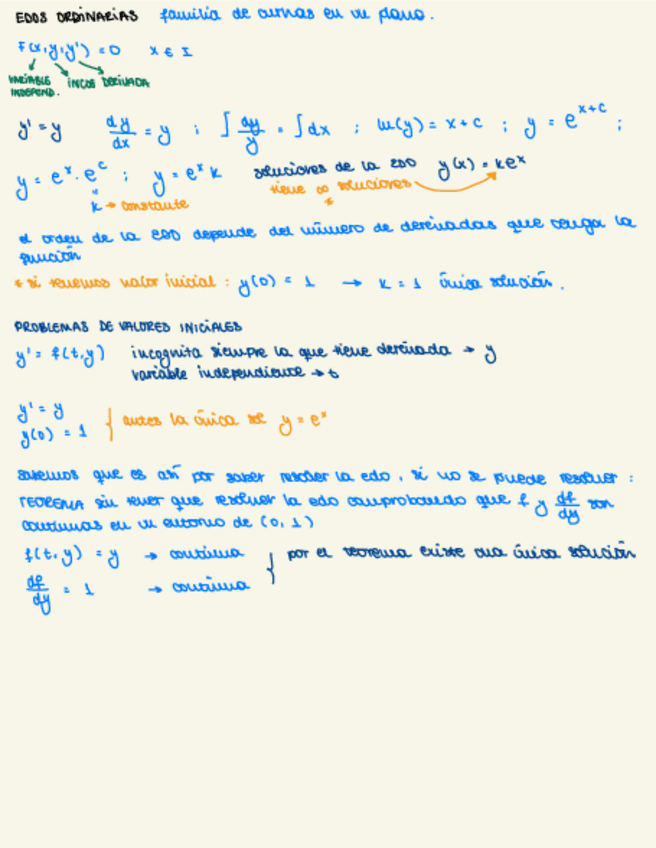 EDOS ORDINARIAS familia de curvas en un plano.
F(x,y,y') = 0 x ∈ I
VARIABLE INDEPEND. INCOG DERIVADA
y' = y dy/dx = y ; ∫ dy/y = ∫ dx ; ln(y) = x + c ; y = e^(x+c) ;
y = e^x · e^c ; y = e^x k soluciones de la EDO y(x) = ke^x
" k → constante tiene ∞ soluciones *
el orden de la EDO depende del número de derivadas que tenga la
función
* si tenemos valor inicial : y(0) = 1 → k = 1 única solución.
PROBLEMAS DE VALORES INICIALES
y' = f(t,y) incognita siempre la que tiene derivada → y
variable independiente → t
y' = y
y(0) = 1 } antes la única sol y = e^x
sabemos que es así por saber resolver la edo, si no se puede resolver :
TEOREMA sin tener que resolver la edo comprobando que f y df/dy son
continuas en un entorno de (0,1)
f(t,y) = y → continua } por el teorema existe una única solución
df/dy = 1 → continua